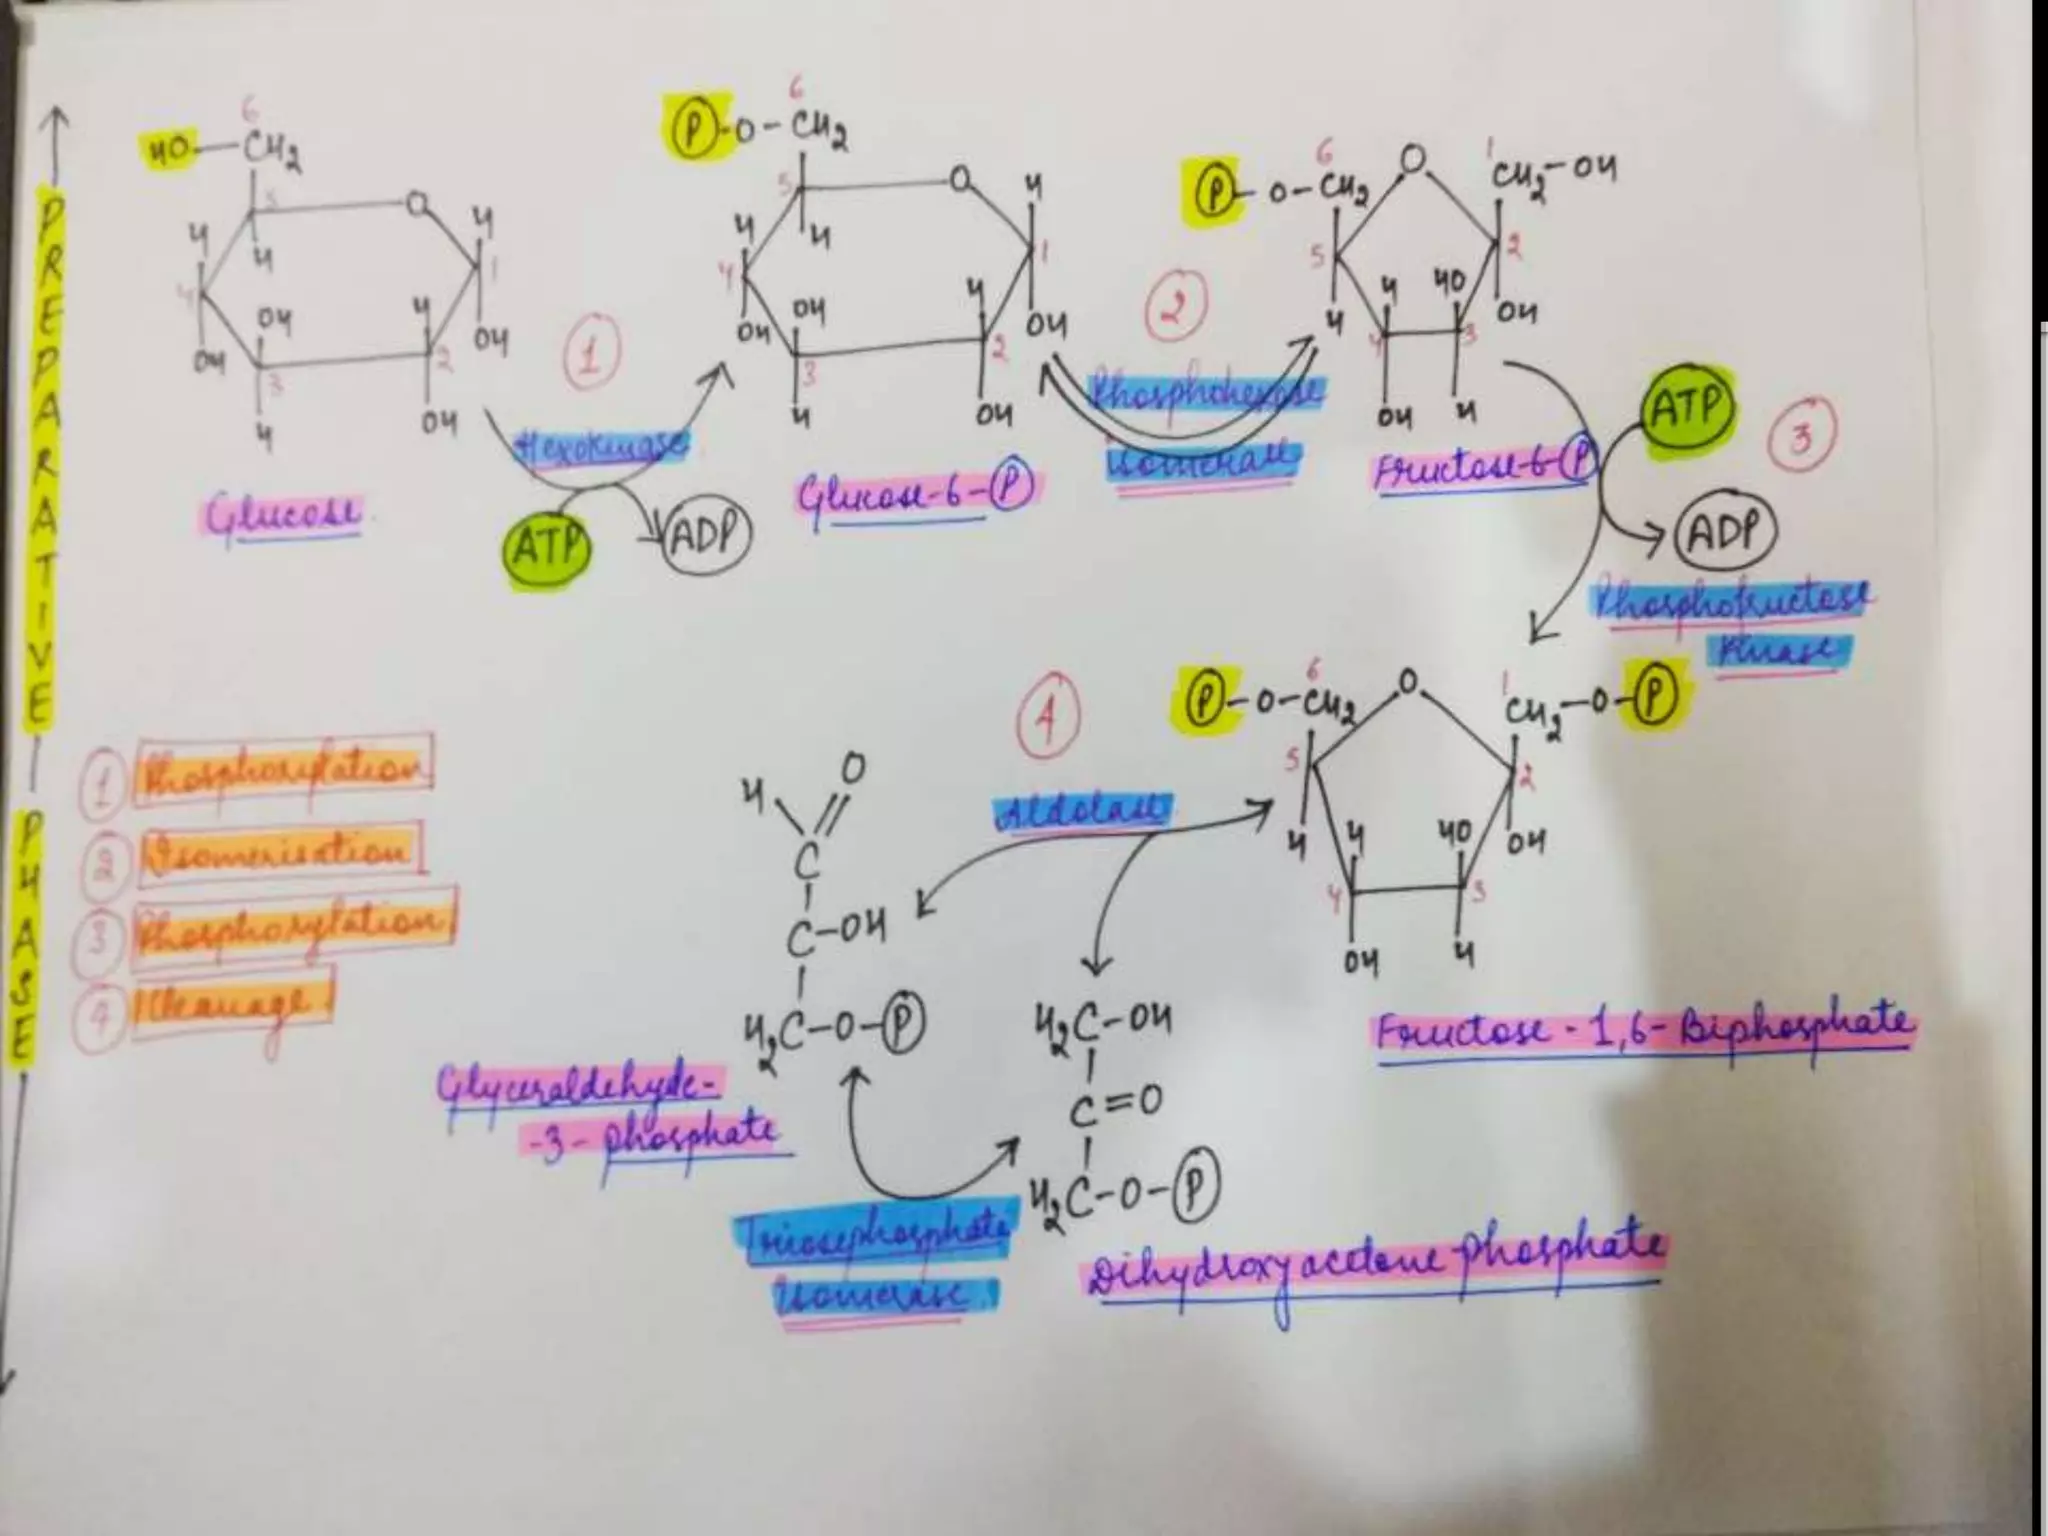 PREPARATIVE PHASE
6
HO-CH2
5
O
H
H
H
4
1
OH
H
OH
OH
3
2
H
OH
Glucose
1
Hexokinase
ATP
ADP
6
P-O-CH2
5
O
H
H
H
4
1
OH
OH
H
OH
3
2
H
OH
Glucose-6-P
2
Phosphohexose
isomerase
6
P-O-CH2
O
1
CH2-OH
5
2
H
H
HO
OH
4
3
OH
H
Fructose-6-P
ATP
3
ADP
Phosphofructose
Kinase
6
P-O-CH2
O
1
CH2-O-P
5
2
H
H
HO
OH
4
3
OH
H
Fructose-1,6-Biphosphate
4
Aldolase
H
O
C
C-OH
H2C-O-P
Glyceraldehyde-
-3-phosphate
H2C-OH
C=O
H2C-O-P
Dihydroxyacetone phosphate
Triosephosphate
isomerase.
1 Phosphorylation
2 Isomerisation
3 Phosphorylation
4 Cleavage